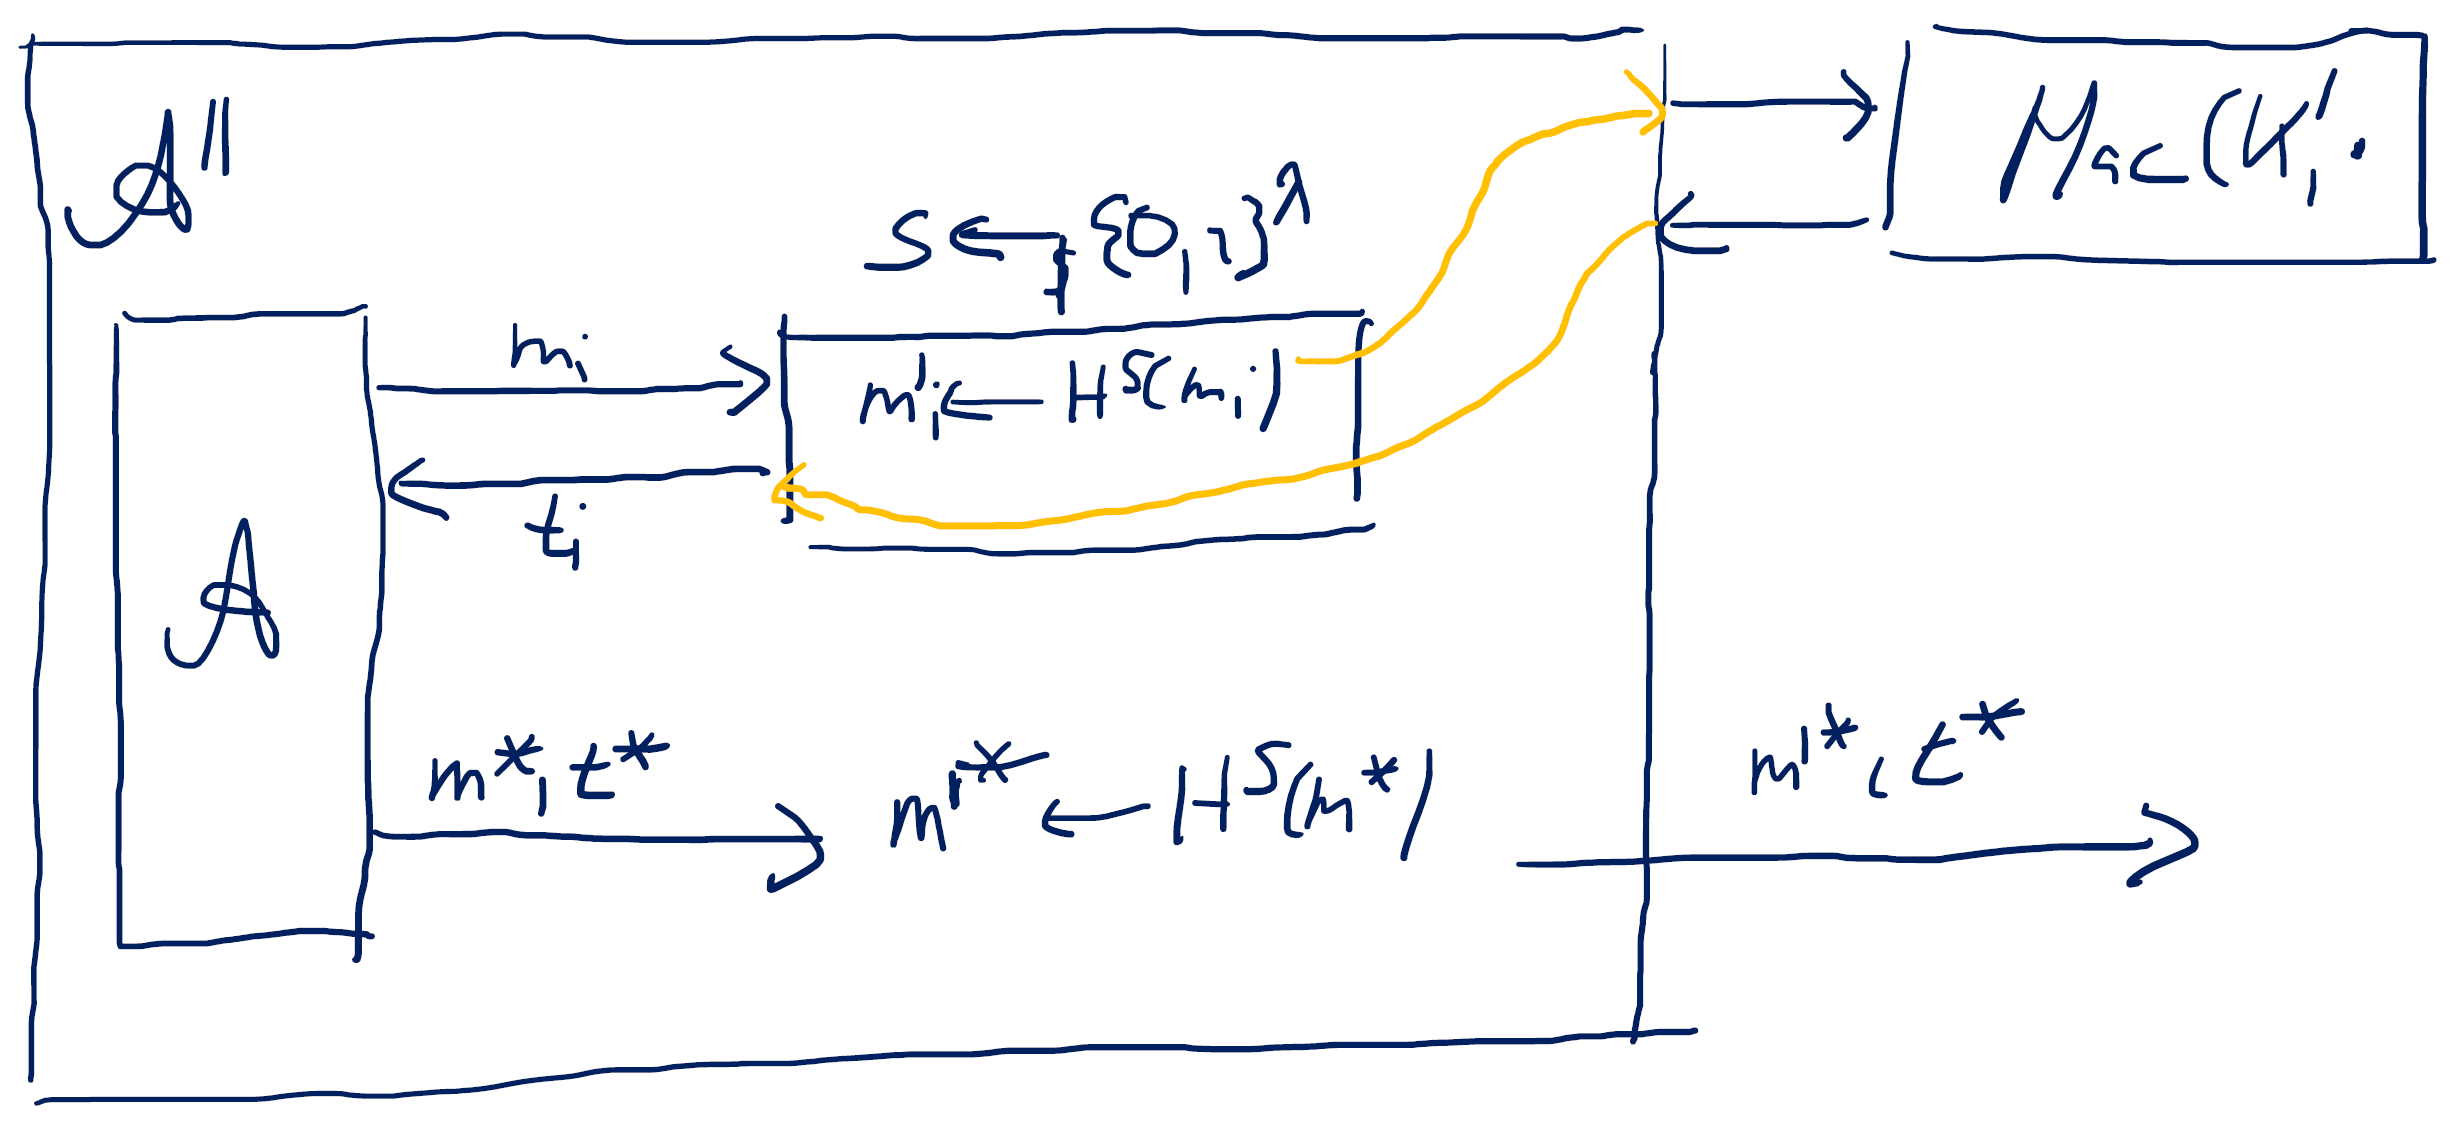 𝒜''
Mac(K,·
S ←$ {0,1}^λ
m_i
m'_i ← H^S(m_i)
t_i
𝒜
m*, t*
m'* ← H^S(m*)
m'*, t*